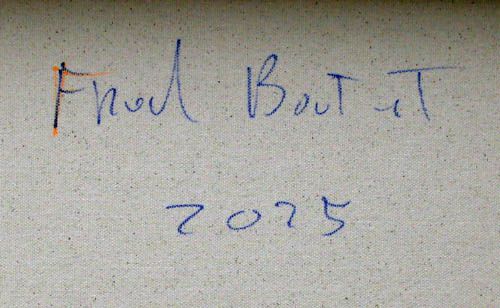 Fred Boutet
2025